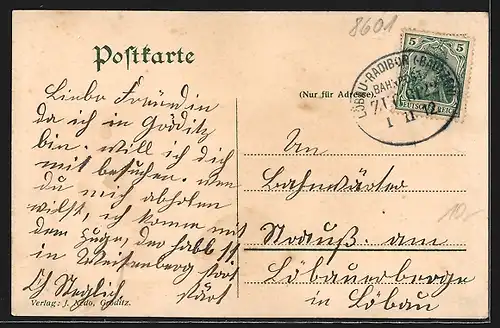 8601
Postkarte
(Nur für Adresse)
5 5
DEUTSCHES REICH
LÖBAU-RADIBOR (-BAUTZEN)
BAHNPOST
ZUG
Liebe Freundin
da ich in Gröditz
bin. will ich dich
mit besuchen. wen
du mich abholen
wilst, ich komme mit
dem Zuge, der halb 11
in Weißenberg
An
Bahnwärter
Strauß. am
Löbauerberge
in Löbau
10.-
Verlag: J. Kedo, Gröditz.